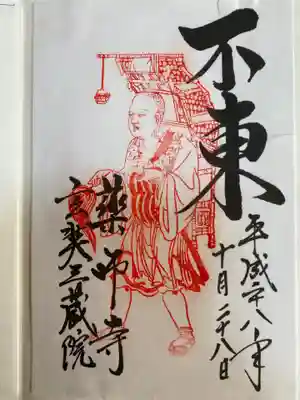 不東
平成廿八年
十月二十八日
薬師寺
玄奘三蔵院